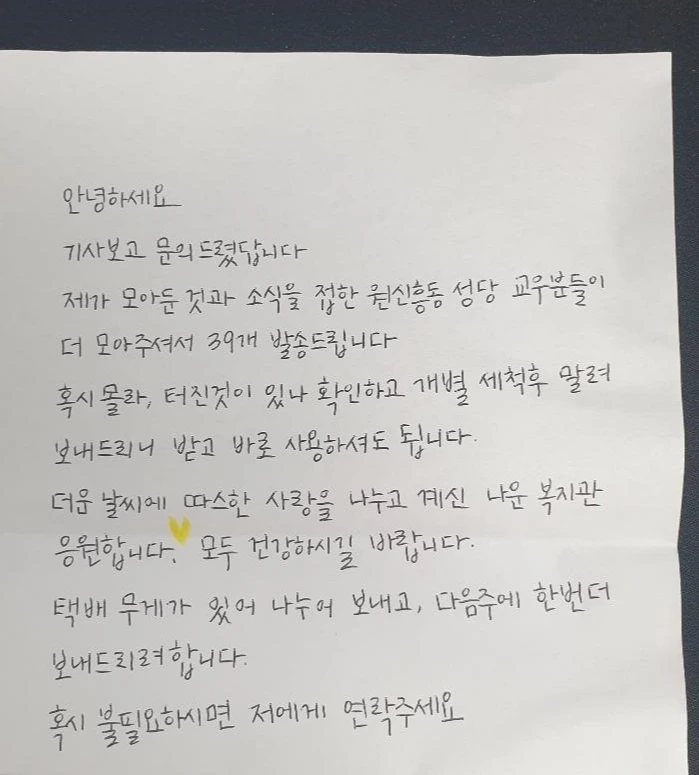 안녕하세요
기사보고 문의드렸답니다
제가 모아둔 것과 소식을 접한 원신흥동 성당 교우분들이
더 모아주셔서 39개 발송드립니다
혹시몰라, 터진것이 있나 확인하고 개별 세척후 말려
보내드리니 받고 바로 사용하셔도 됩니다.
더운 날씨에 따스한 사랑을 나누고 계신 나운 복지관
응원합니다. 모두 건강하시길 바랍니다.
택배 무게가 있어 나누어 보내고, 다음주에 한번더
보내드리려합니다.
혹시 불필요하시면 저에게 연락주세요